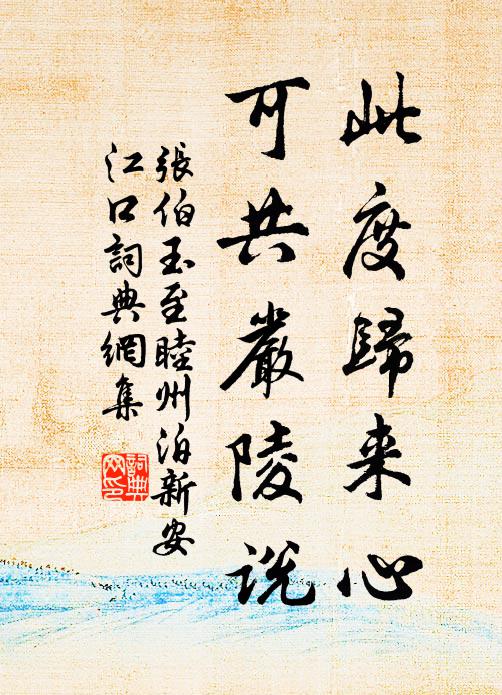 此度歸来心
可共嚴陵説
張伯玉至睦州泊新安
江口詞典網集
詞典
网印